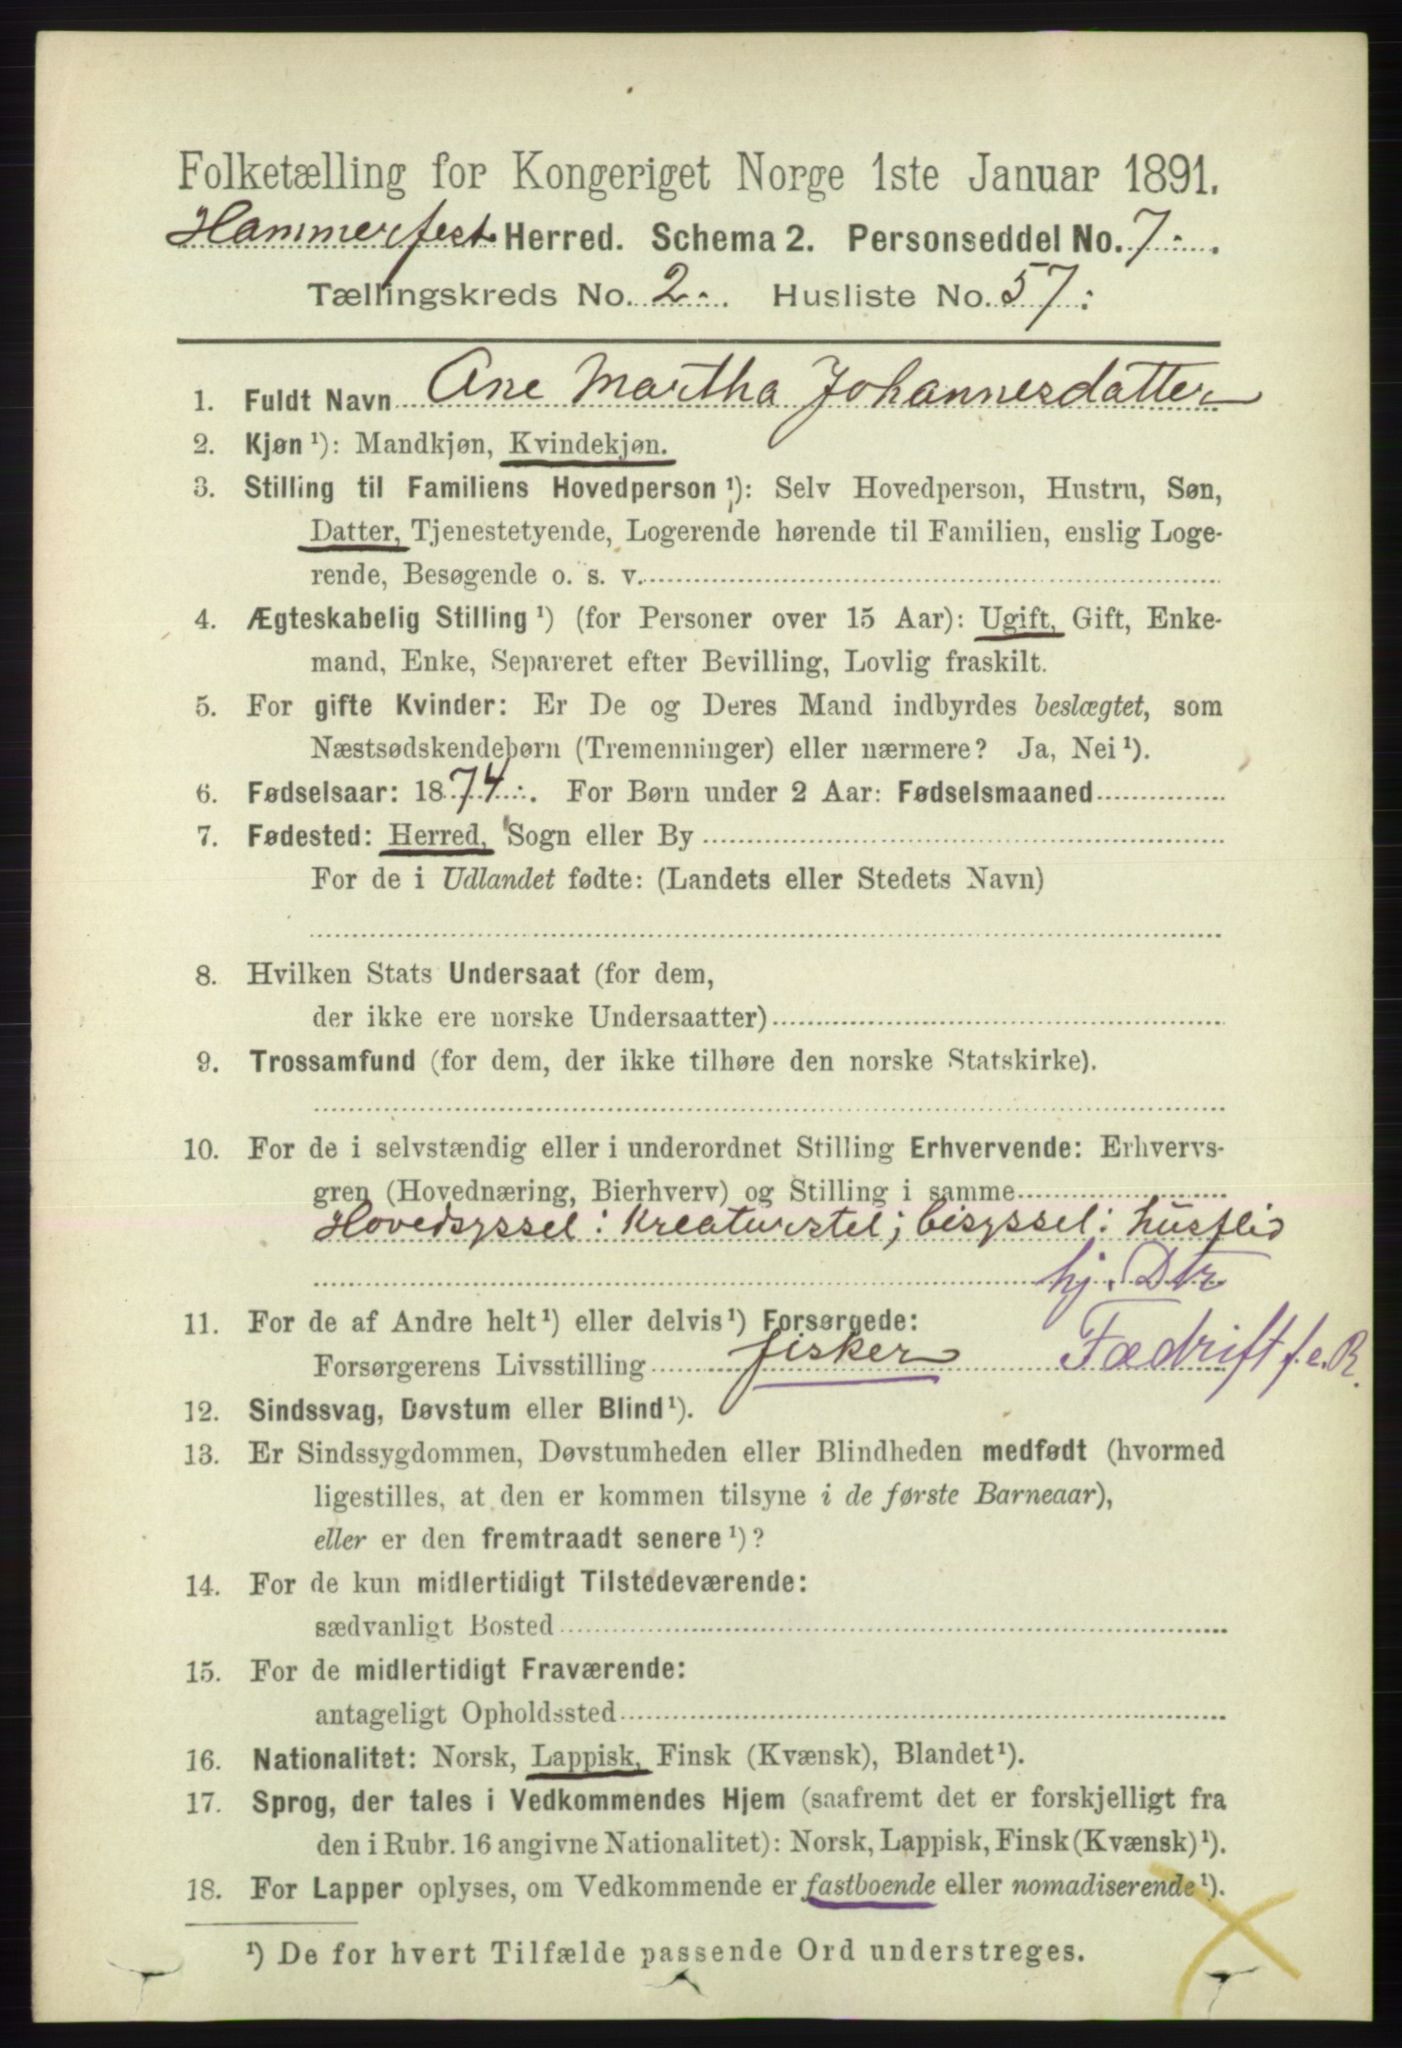 Folketælling for Kongeriget Norge 1ste Januar 1891.
Hammerfest Herred. Schema 2. Personseddel No. 7.
Tællingskreds No. 2. Husliste No. 57:
1. Fuldt Navn Ane Martha Johannesdatter
2. Kjøn ¹): Mandkjøn, Kvindekjøn.
3. Stilling til Familiens Hovedperson ¹): Selv Hovedperson, Hustru, Søn,
Datter, Tjenestetyende, Logerende hørende til Familien, enslig Loge-
rende, Besøgende o. s. v.
4. Ægteskabelig Stilling ¹) (for Personer over 15 Aar): Ugift, Gift, Enke-
mand, Enke, Separeret efter Bevilling, Lovlig fraskilt.
5. For gifte Kvinder: Er De og Deres Mand indbyrdes beslægtet, som
Næstsødskendebørn (Tremenninger) eller nærmere? Ja, Nei ¹).
6. Fødselsaar: 1874. For Børn under 2 Aar: Fødselsmaaned
7. Fødested: Herred, Sogn eller By
For de i Udlandet fødte: (Landets eller Stedets Navn)
8. Hvilken Stats Undersaat (for dem,
der ikke ere norske Undersaatter)
9. Trossamfund (for dem, der ikke tilhøre den norske Statskirke).
10. For de i selvstændig eller i underordnet Stilling Erhvervende: Erhvervs-
gren (Hovednæring, Bierhverv) og Stilling i samme
Hovedsyssel: Kreaturstel; bisyssel: husflid
hj. Dtr
11. For de af Andre helt ¹) eller delvis ¹) Forsørgede:
Forsørgerens Livsstilling fisker Fædrift f. e. R.
12. Sindssvag, Døvstum eller Blind ¹).
13. Er Sindssygdommen, Døvstumheden eller Blindheden medfødt (hvormed
ligestilles, at den er kommen tilsyne i de første Barneaar),
eller er den fremtraadt senere ¹)?
14. For de kun midlertidigt Tilstedeværende:
sædvanligt Bosted
15. For de midlertidigt Fraværende:
antageligt Opholdssted
16. Nationalitet: Norsk, Lappisk, Finsk (Kvænsk), Blandet ¹).
17. Sprog, der tales i Vedkommendes Hjem (saafremt det er forskjelligt fra
den i Rubr. 16 angivne Nationalitet): Norsk, Lappisk, Finsk (Kvænsk) ¹).
18. For Lapper oplyses, om Vedkommende er fastboende eller nomadiserende ¹).
¹) De for hvert Tilfælde passende Ord understreges.